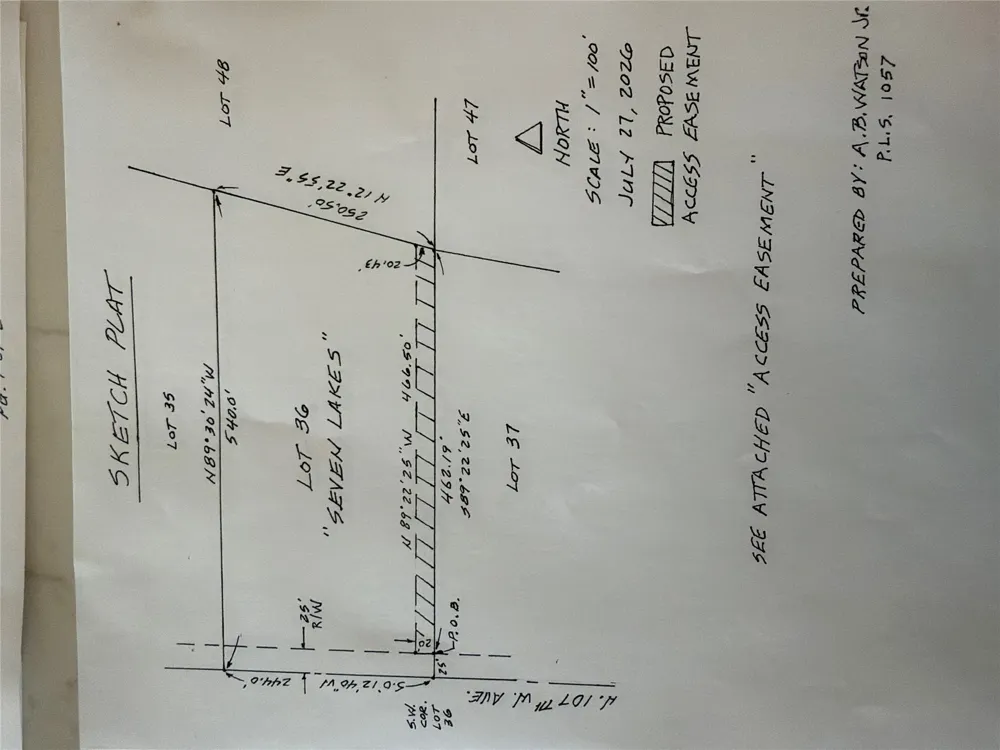 SKETCH PLAT
LOT 35
LOT 48
N89°30'24"W
540.0'
N 12°22'55"E
250.50'
LOT 36
"SEVEN LAKES"
25'
R/W
244.0'
S.0°12'40"W
20.43'
N 89°22'25"W 466.50'
20'
P.O.B.
25'
462.19'
S89°22'25"E
S.W.
COR.
LOT
36
N. 107TH W. AVE.
LOT 37
LOT 47
NORTH
SCALE: 1"=100'
JULY 27, 2026
PROPOSED
ACCESS EASEMENT
SEE ATTACHED "ACCESS EASEMENT"
PREPARED BY: A.B. WATSON Jr.
P.L.S. 1057